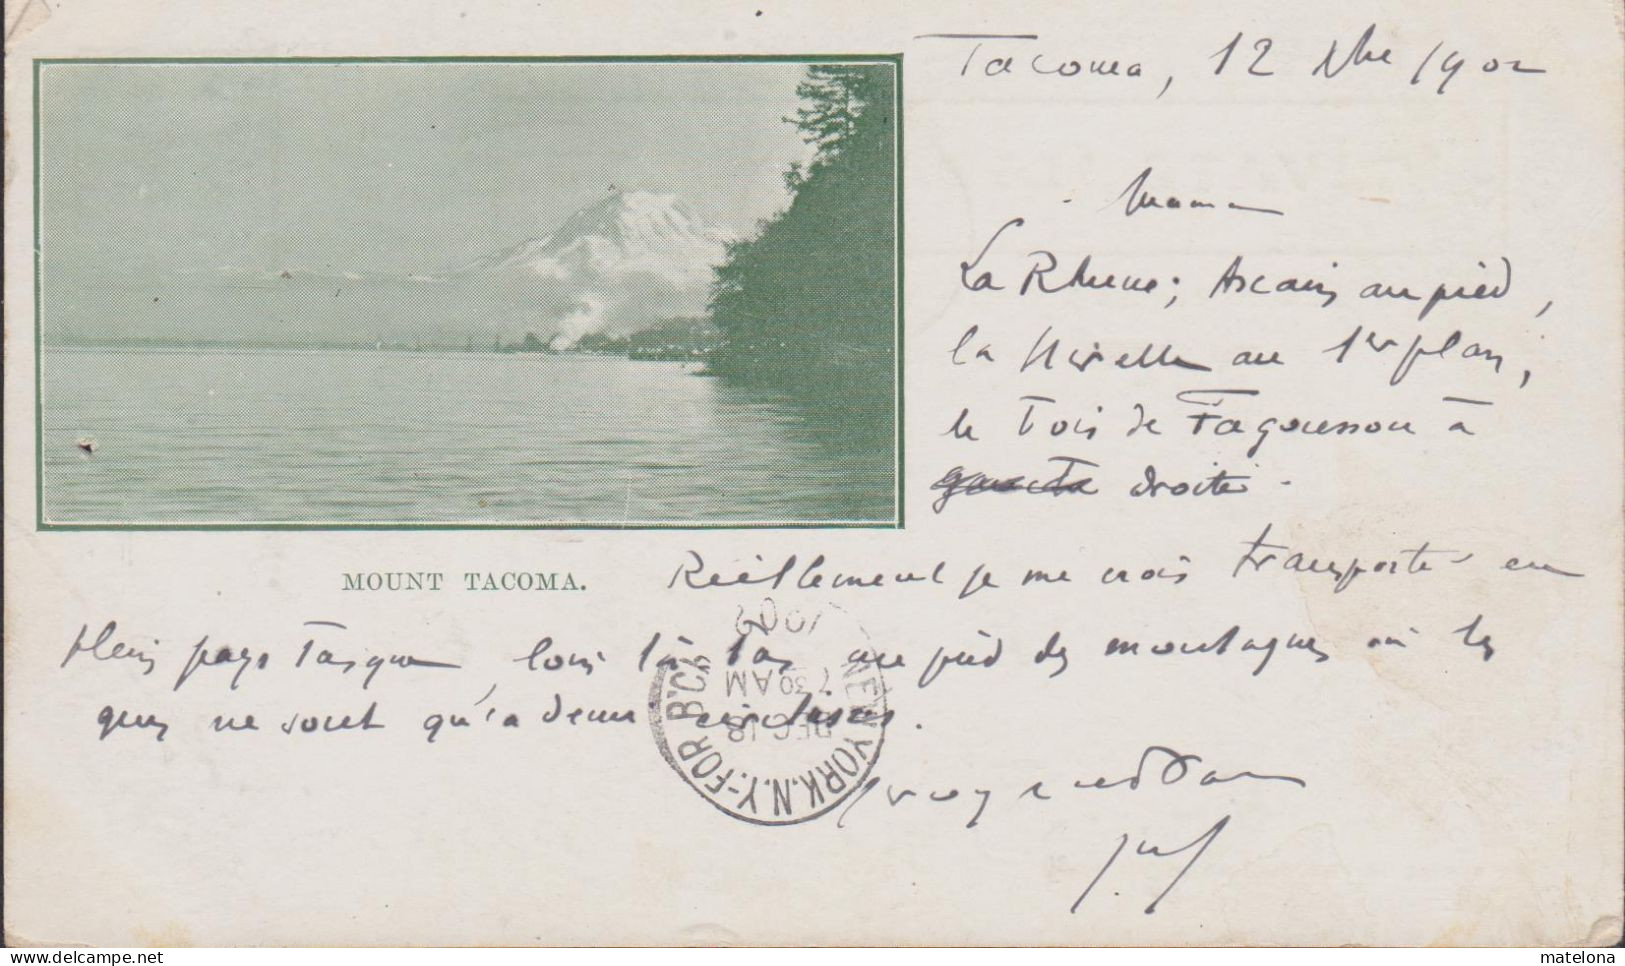 Tacoma, 12 Xbre 1902
Maman
La Rhune; Ascain au pied,
la Nivelle au 1er plan,
le Bois de Fagousson à
gauche droite.
MOUNT TACOMA.
Réellement je me crois transporté en
plein pays Basque, loin là bas au pied des montagnes où les
gens ne sont qu'à demi
1902
7 30 AM
DEC 18
NEW YORK, N.Y.-FOR B'CH
delcampe.net
matelona